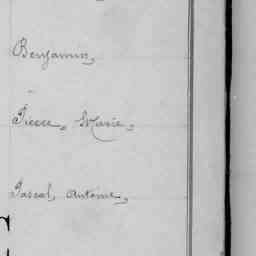 Benjamin,
Pierre, Marie,
Pascal, Antoine,